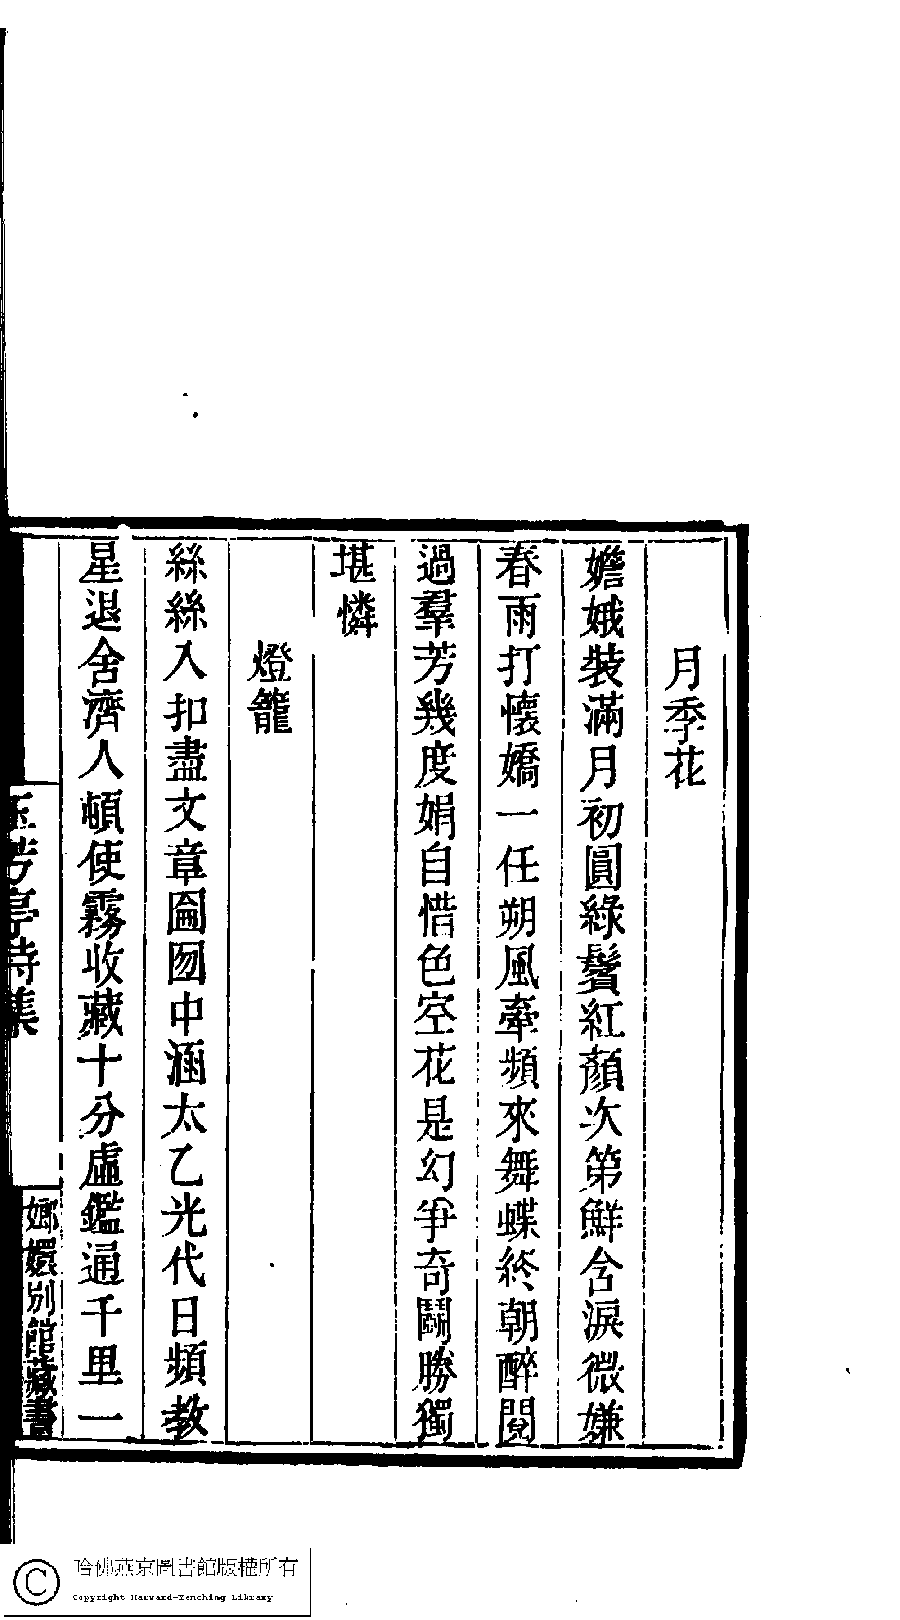 月季花
嫦娥裝滿月初圓綠鬢紅顏次第鮮含淚微嫌
春雨打懷嬌一任朔風牽頻來舞蝶終朝醉閱
過羣芳幾度娟自惜色空花是幻爭奇鬪勝獨
堪憐
燈籠
絲絲入扣盡文章圇囫中涵太乙光代日頻教
星退舍濟人頓使霧收藏十分虛鑑通千里一
芳亭詩集
嫏嬛別館藏書
哈佛燕京圖書館版權所有
Copyright Harvard-Yenching Library